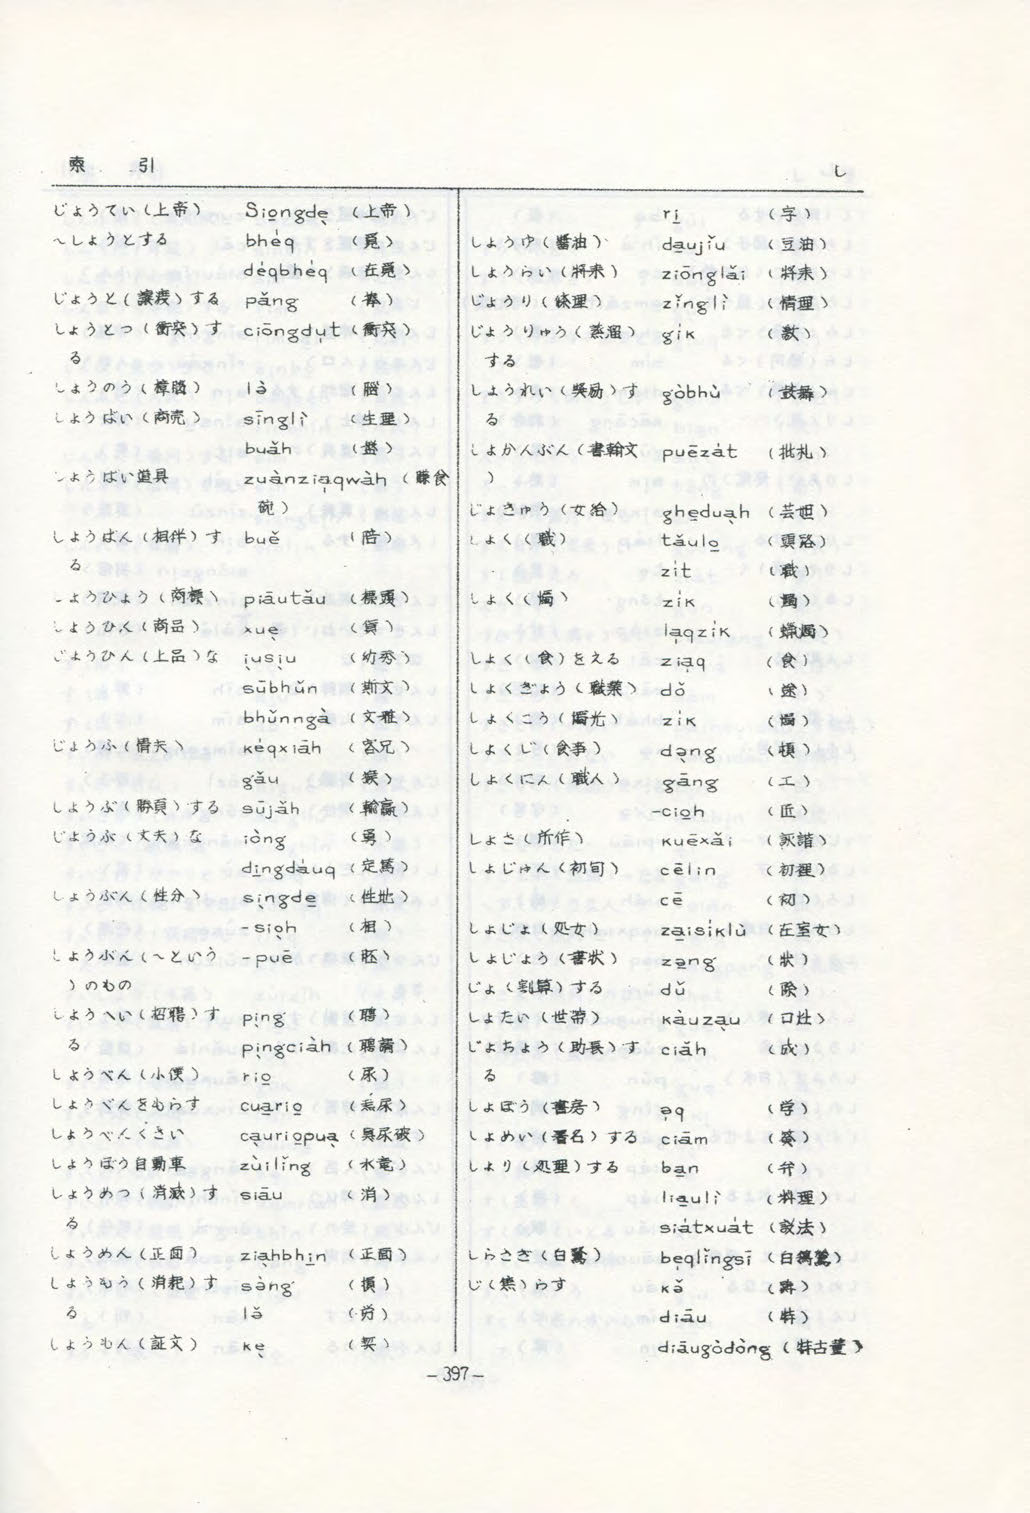 索 引
し
じょうてい(上帝) Siongde (上帝)
~しようとする bhéq (覓)
déqbhéq (在覓)
じょうと(譲渡)する pǎng (捧)
しょうとつ(衝突)す ciōngdụt (衝突)
る
しょうのう(樟脳) lə̀ (脳)
しょうばい(商売) sīnglì (生理)
buǎh (盤)
しょうばい道具 zuànziạqwàh (賺食
碗)
しょうばん(相伴)す buě (陪)
る
しょうひょう(商標) piāutǎu (標頭)
しょうひん(商品) xuẹ (貨)
じょうひん(上品)な iusiu (幼秀)
sūbhǔn (斯文)
bhǔnngà (文雅)
じょうふ(情夫) kéqxiāh (客兄)
gǎu (猴)
しょうぶ(勝負)する sūjǎh (輸贏)
じょうぶ(丈夫)な iòng (勇)
dingdáuq (定篤)
しょうぶん(性分) singde (性地)
-sioh (相)
しょうぶん(~という -puē (胚)
)のもの
しょうへい(招聘)す pịng (聘)
る pịngciàh (聘請)
しょうべん(小便) rio (尿)
しょうべんをもらす cuario (尿)
しょうべんくさい cạuriopuạ (臭尿破)
しょうぼう自動車 zùilǐng (水竜)
しょうめつ(消滅)す siāu (消)
る
しょうめん(正面) ziạhbhin (正面)
しょうもう(消耗)す sə̀ng (損)
る lǎ (労)
しょうもん(証文) kẹ (契)
ri (字)
しょうゆ(醤油) daujǐu (豆油)
しょうらい(将来) ziōnglǎi (将来)
じょうり(條理) zǐnglì (情理)
じょうりゅう(蒸溜) gík
する
しょうれい(奨励)す gòbhù (鼓舞)
る
しょかんぶん(書翰文 puēzát (批札)
)
じょきゅう(女給) gheduạh (芸妲)
しょく(職) tǎulo (頭路)
zít (職)
しょく(燭) zík (燭)
lạqzík (蝋燭)
しょく(食)をえる ziạq (食)
しょくぎょう(職業) dǒ (途)
しょくこう(燭光) zík (燭)
しょくじ(食事) dəng (頓)
しょくにん(職人) gāng (工)
-cioh (匠)
しょさ(所作) kuēxǎi (詼諧)
しょじゅん(初旬) cēlin (初裡)
cē (初)
しょじょ(処女) zaisíklù (在室女)
しょじょう(書状) zəng (状)
じょ(割算)する dǔ (除)
しょたい(世帯) kàuzạu (口灶)
じょちょう(助長)す ciǎh (成)
る
しょぼう(書房) ə̣q (学)
しょめい(署名)する ciām
しょり(処理)する ban (弁)
liəulì (料理)
siátxuát (設法)
しらさぎ(白鷺) bẹqlǐngsī (白鴒鷥)
じ(焦)らす kǎ
diāu
diāugòdòng
- 397 -